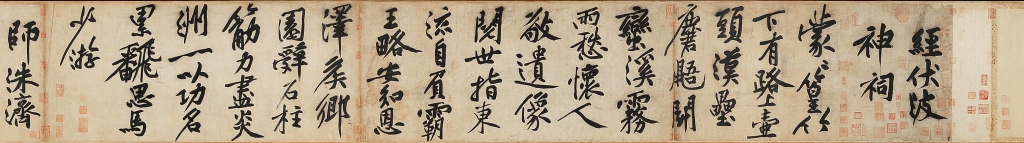 經伏波
神祠
蒙〻篁竹
下有路上壺
頭漢壘
麏鼯鬭
蠻溪霧
雨愁懷人
敬遺像
閱世指東
流自負霸
王略安知恩
澤侯鄉
園辭石柱
筋力盡炎
洲一以功名
累飜思馬
少游
師洙濟